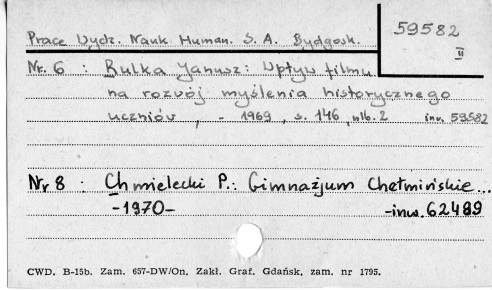 59582
II
Prace Wydz. Nauk Human. S. A. Bydgosk.
Nr. 6 : Bulka Janusz: Wpływ filmu
na rozwój myślenia historycznego
uczniów, - 1969, s. 146, nlb. 2 inw. 59582
Nr 8 : Chmielecki P.: Gimnazjum Chełmińskie...
-1970- -inw. 62489
CWD. B-15b. Zam. 657-DW/On. Zakł. Graf. Gdańsk, zam. nr 1795.